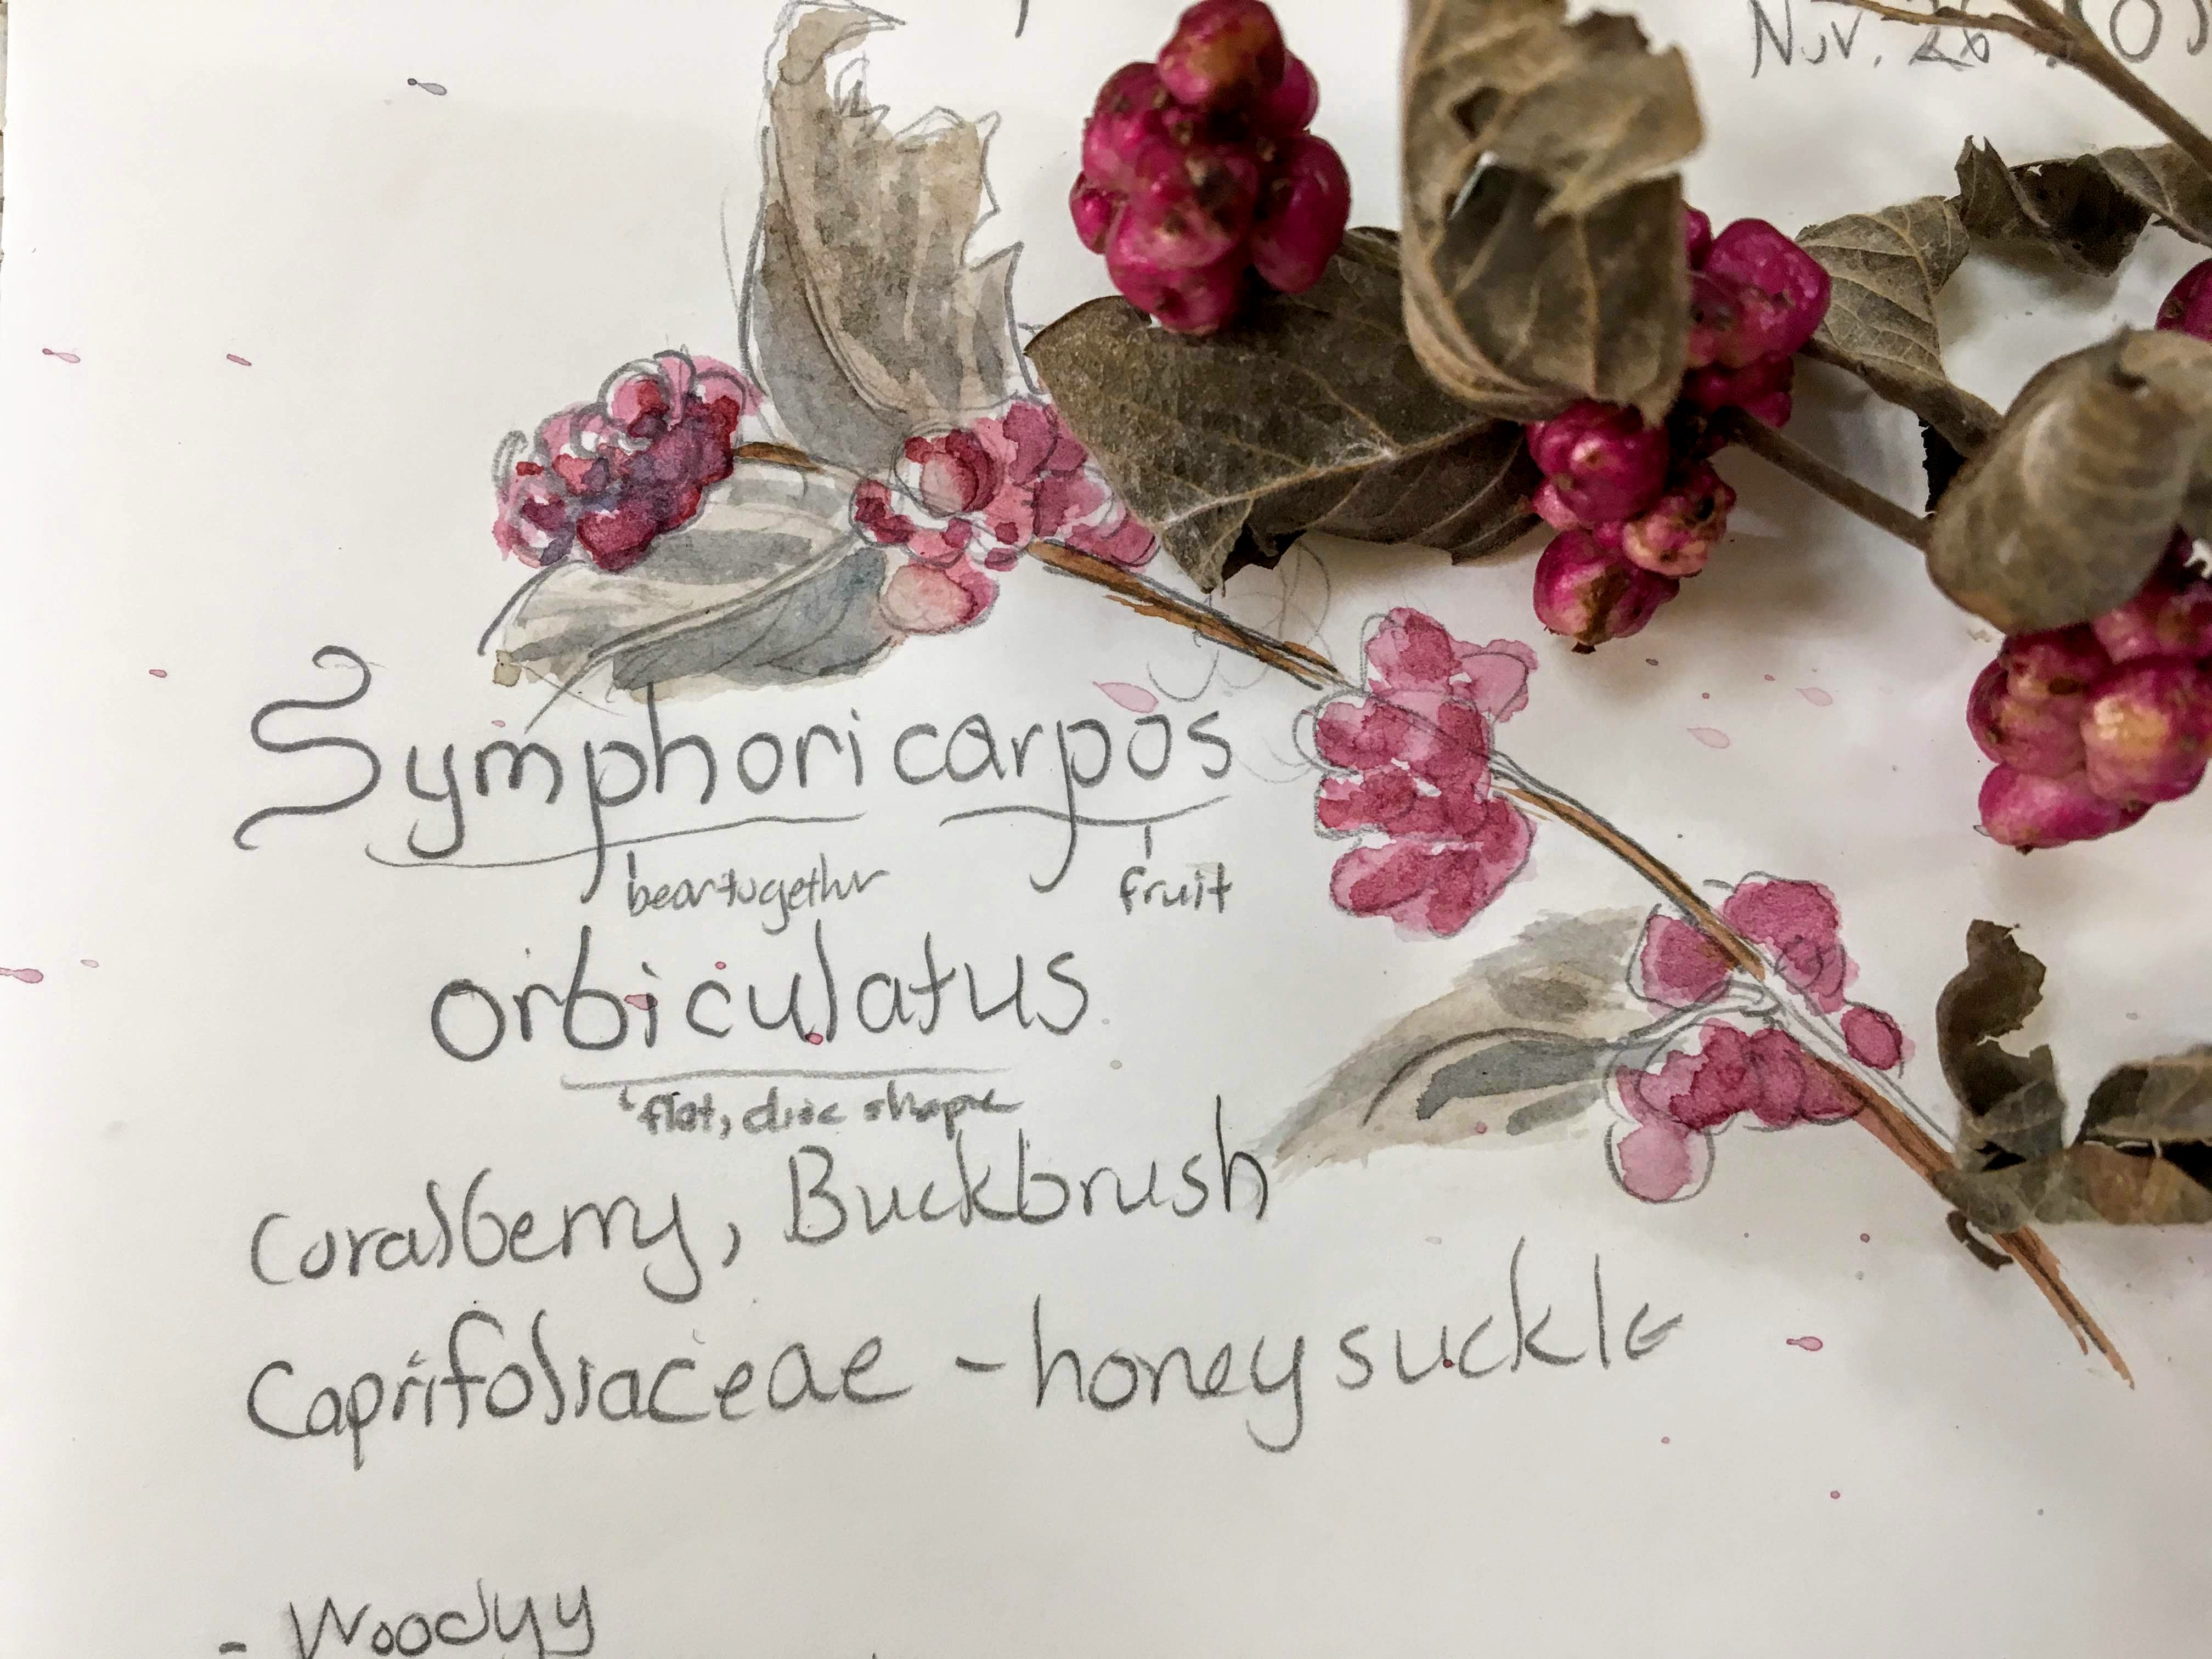 Nov. 26
Symphoricarpos
bear together fruit
orbiculatus
flat, disc shape
Coralberry, Buckbrush
Caprifoliaceae - honeysuckle
- Woodyy